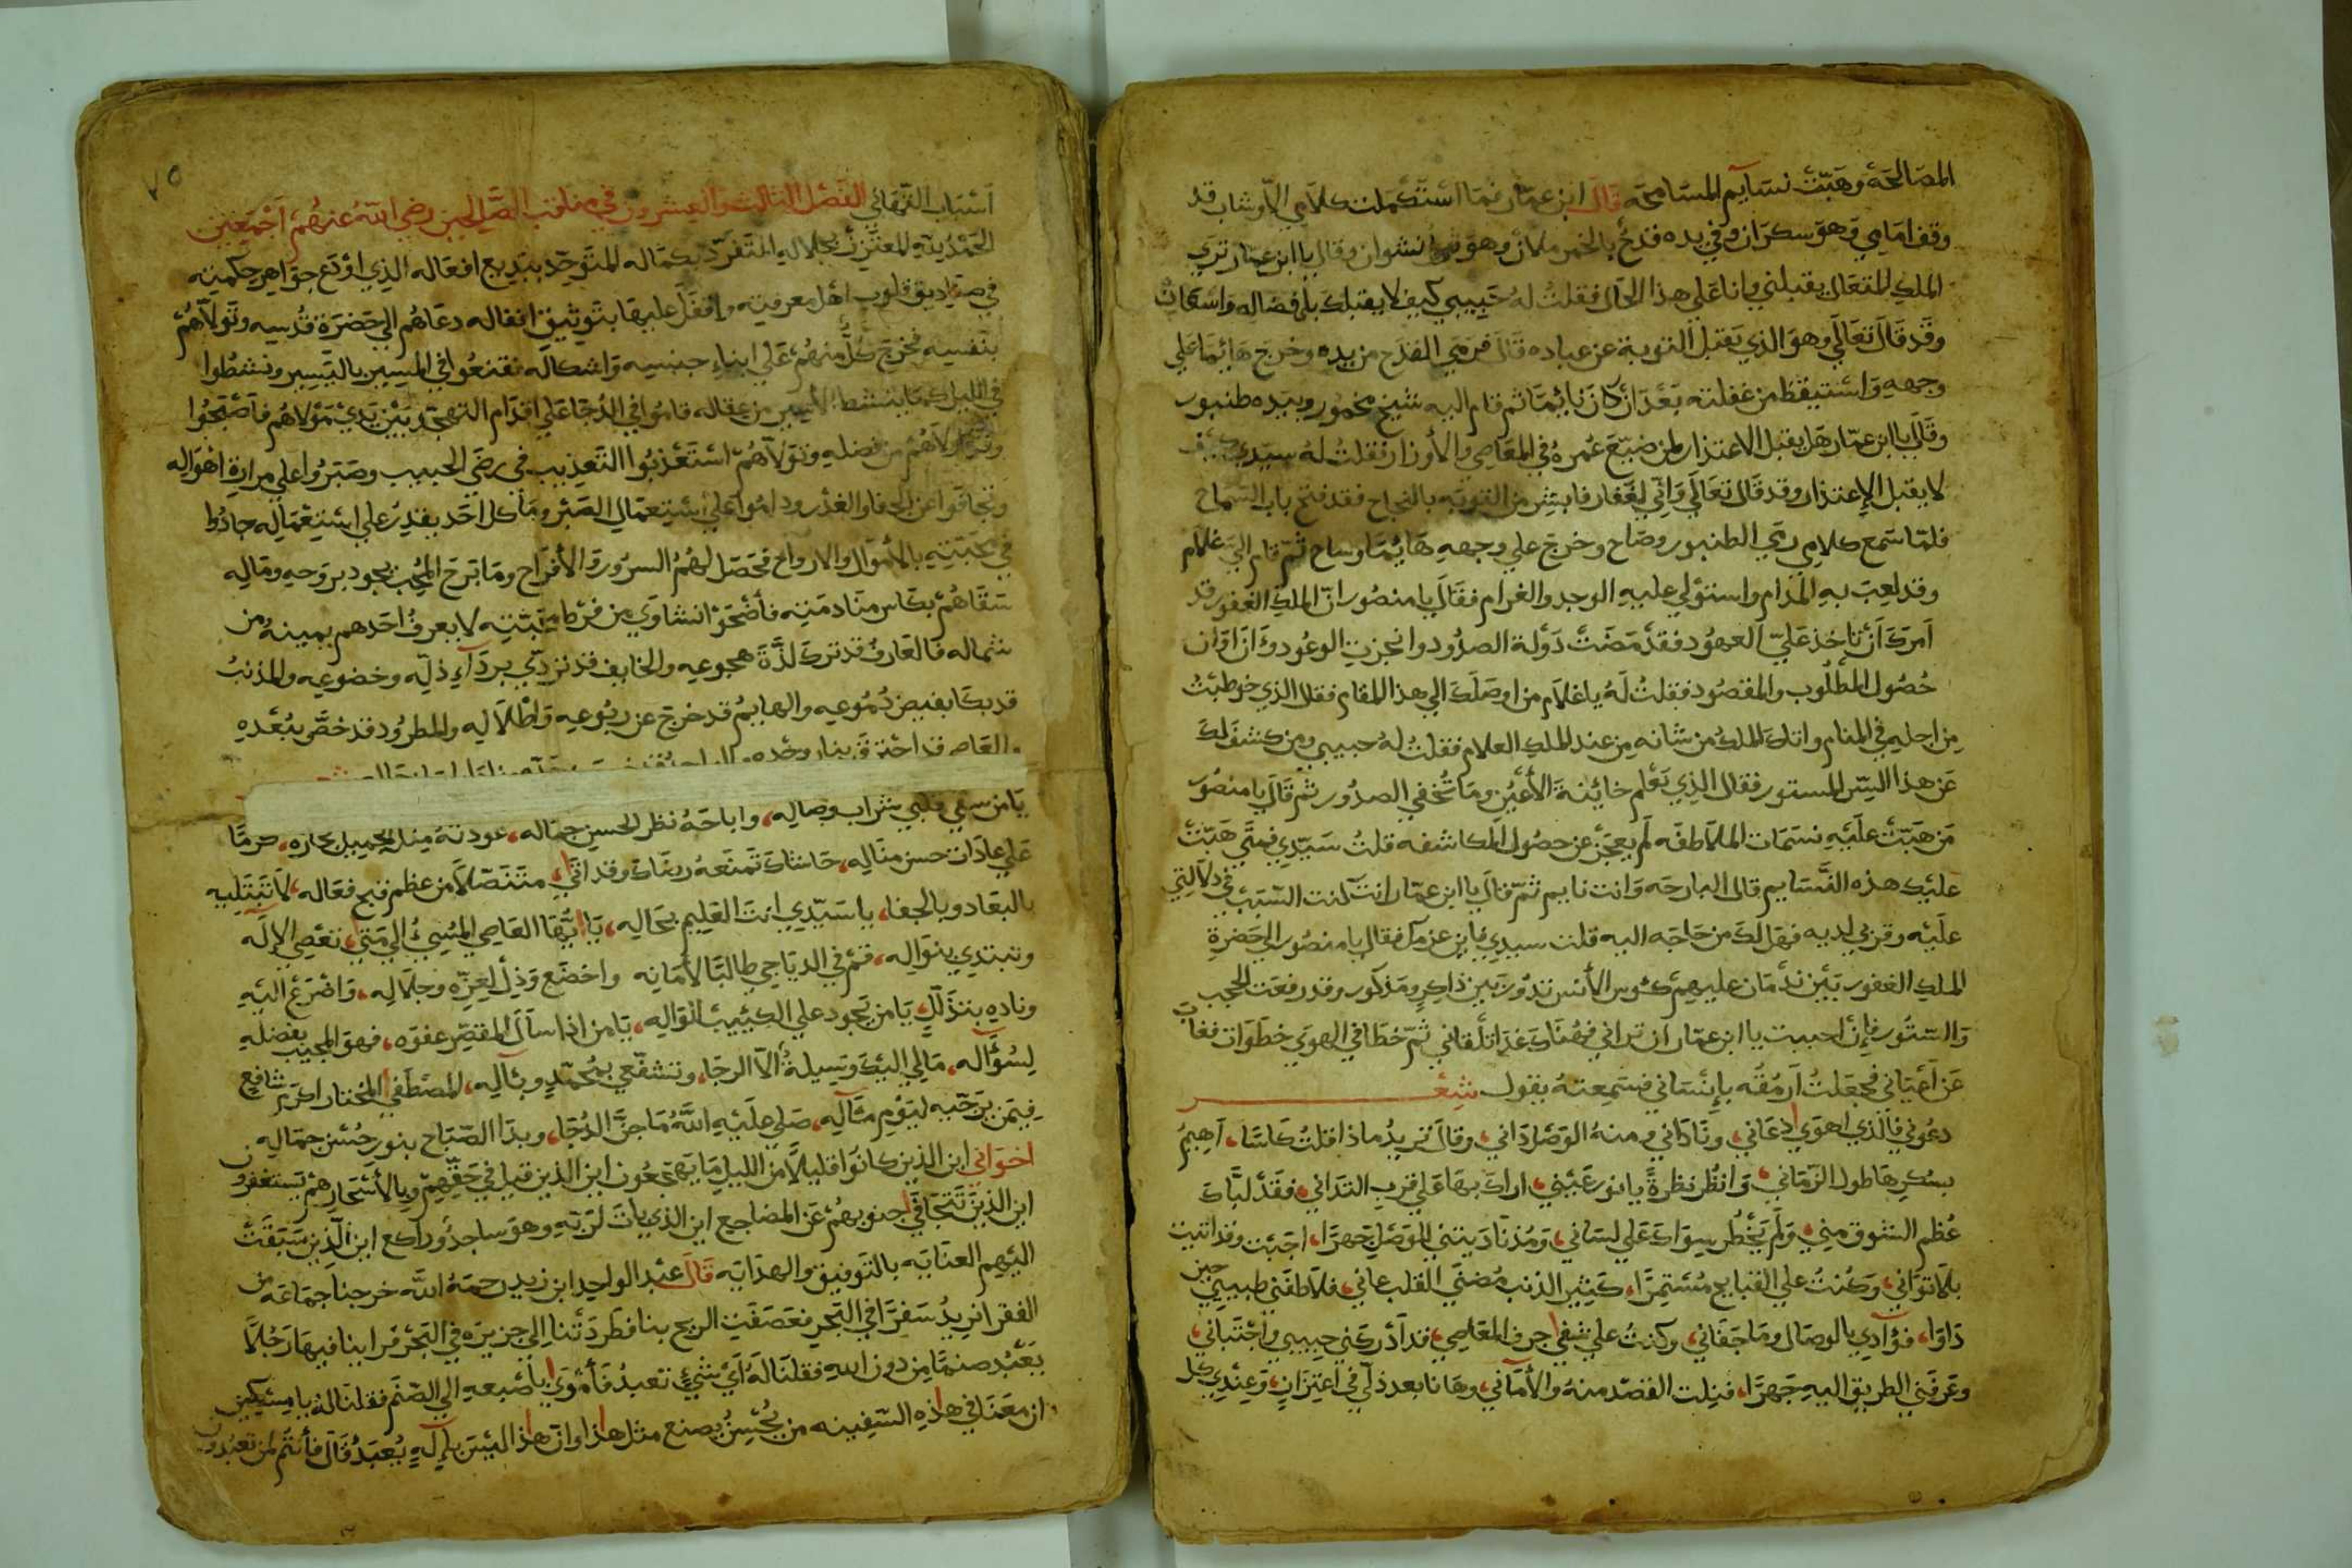 المصَالحَة وهَبّتْ نسَايم المسَامحَة قالَ ابن عمّار فمَا استَكمَلت كلاَمِي الاّ وشاب قدْ
وقف امَامِي وَهوَ سكرَان وفي يده قدحُ بالخمر ملآن وهوَ نشوان وقال يا ابن عمّار ترَي
الملك المتعَال يقبلني وانا عَلي هذا الحَال فقلتُ لهُ حَبيبي كيف لا يقبلك بافضاله
وقَد قَالَ تعَالي وهوَ الذي يَقبَل التوبة عَن عباده قَالَ فرمَي القدَح من يده وخرجَ هَائمًا علي
وجههِ وَاسْتيقظ من غفلته بَعْدَ انْ كانَ نائِمًا ثم قام اليه شيخ مخمور وبيَده طنبور
وقَالَ يا ابن عمّار هَل يقبل الاعتذار لمن ضيّعَ عُمرهُ في المعَاصي والأوزار فقلتُ لهُ سيّدي كيف
لا يقبل الإعتذار وقد قَالَ تعَالي وَانّي لغَفّار فابشر من التوبَه بالنجاح فقد فتح باب السّماح
فلمّا سَمع كلامِي رمَي الطنبور وصَاح وخرجَ علي وجههِ هَائمًا وساح ثمّ قام اليّ غلام
وقد لعِبَ بهِ المدَام واستوْلي عليهِ الوجد والغرام فقَالَ يا منصُور انّ الملك الغَفور قد
اَمرَكَ اَنْ تاخذ عَلَيّ العهوُد فقدْ مَضَتْ دَوْلة الصدُود وانجزتِ الوعُود وَآنَ اَوَان
حُصُول المطلُوب والمقصُود فقلتُ لَهُ يا غلاَم من اوصَلَكَ الي هذا المقام فقال الذي خوطبْتَ
مِن اجلهِ في المنام واتاكَ الملكُ من شانه مِن عند الملك العلام فقلتُ لهُ حبيبي ومن كشف لكَ
عَن هذا السِّر المستور فقال الذِي يَعْلم خائنةَ الأعْيُن ومَا تُخفي الصدُور ثمّ قَالَ يا منصُور
مَن هَبّتْ علَيْهِ نسَمَات الملاَطفَه لَم يعجَز عن حصُول المكاشفه قلتُ سَيّدِي فمتَي هَبّتْ
عليْكَ هذه النّسَايم قال البارحَه وَانت نايم ثمّ قالَ يا ابن عمّار انتَ كنت السّبَبْ في دلاَلتي
علَيْه وقربي لديه فهَل لكَ من حَاجَه اليه قلت سيدي فاين عزمكَ فقال يا منصُور الي حَضرةِ
الملكِ الغفور بَيْن ندْمَان عليهِمْ كئوس الأنس تدُورْ بَين ذاكِرٍ ومَذكور وقد رفعَت الحجب
وَالسّتور فإِنْ احببت يا ابن عمّار ان تراني فهُنَاكَ غدًا تلْقاني ثمّ خطَا في الهوَي خطوَات فغابَ
عَن اَعيَاني فجعَلتُ اَرمُقُه بِاِنْسَاني فسَمِعتهُ يقول شعْر
دعُوني فالّذي اهوَي دعَاني، ونَادَاني ومنهُ الوَصْل دَاني، وقَالَ تريدُ ماذا قلتُ كَاسًا، اَهِيمُ
بسُكرِهَا طولَ الزّمَاني، وَانظُر نظرةً يا نورَ عَيْني، اراكَ بهَا عَلي قربِ التدَاني، فقَدْ لبَّاكَ
عُظم الشوق مِني، وَلَم يَخطُر سِوَاكَ عَلي لسَاني، وَمُذ نَادَيتني للوَصْلِ جَهرًا، اجَبْت وقد اتيت
بلاَ توَاني، وَكُنتُ علي القبَايح مُسْتمِرًّا، كَثِير الذنب مُضنَي القلب عاني، فلاَطفَني طبيبي حين
دَاوَا، فؤادِي بالوصَال ومَا جَفَاني، وكنتُ علي شفي جرف المعَاصِي، فداَدْركني حبيبي واجْتبَاني،
وعَرفَني الطريق اليهِ جَهرًا، فنلت القصْد منهُ والأمَاني، وهَا نا بعد ذلّي في اعتِزَازٍ، وَعِندِي كل
٧٥
اَسْبَاب التّهَانِي الفَصْل الثالث والعِشرون في مناقب الصّالِحِين رضي اللّهُ عنهُمْ اَجْمَعِين
الحَمْدُ لِلّهِ المعتزّ بجلالهِ المتفَرّد بكمَاله المتَوحّد ببَدِيع افعَاله الذِي اوْدَع جوَاهِر حِكمَتِه
في صنَاديق قلوب اهْل معرفتِه واقفَل عليهَا بتَوثيق اقفاله دعَاهُم الي حَضرَة قدُسِه وتَولاَّهُمْ
بنَفسِه فخرجَ كُلٌّ منهُمْ عَلي ابناءِ جنسِه وَاشكالَه فقنعُوا في المسِير بالتّيسِير ونشطُوا
في الليل كمَا ينشط الاسير من عقاله قامُوا في الدُجَا علي اقدَام التهَجّد بَيْنَ يَدَيْ مَوْلاهُم فاَصْبَحُوا
وتَولاَّهُمْ من فضلهِ اسْتَعْذبُوا التَعذِيب في رضَي الحَبيب وصَبَرُوا علي مرارةِ اهْوَالِه
وتجافَوا عن الجَفا والغدْر ودَامُوا عَلي اسْتعمَال الصَبْر ومَا كل احَد يقدِرُ علي اسْتِعْمَالِه جادُوا
في محَبّتهِ بالأمْوَال والارواح فحَصَل لهُمُ السرُور وَالأفرَاح ومَا بَرحَ المُحِبّ يجود بروحهِ ومَالِه
سَقَاهُمْ بكَاسِ منَادمَتِه فاَضْحَوْا نشاوَي مِن فرْط محَبّتِه لا يعرفُ احَدهم يمينهُ من
شمالِه فالعَارفُ قد تركَ لذّةَ هجوعِه والخايف قد تردّي بردَآءِ ذلِّه وخضوعِه والمذنبُ
قد بكَا بفيضِ دُمُوعِه والهايمُ قد خرجَ عن ربُوعِه وَاطْلاَلِه والمطرُود قد خصَّ ببُعْدهِ
العَاصِ قد احْترقَ بنار وحْده
يَا من سقي قلبي شرَاب وِصَالِه، واباحَهُ نظر لحُسن جمَاله، عودتهُ مِنكَ الجميل تكارُه، كرمًا
عَلي عادَات حسن منَالِه، حَاشاكَ تَمنَعهُ رضَاكَ وقد اَتي، متَنَصّلاً من عظم قبح فعَاله، لاَ تَبْتَلِيه
بالبعَاد وبالجفا، يا سَيّدِي انتَ العَلِيم بحَالِه، يَا ايُّهَا العَاصِي المُسِيءُ الي مَتَي، تعْصِي الإلَه
وتبتدِي بنوَالِه، قمْ في الديَاجي طالبًا لأمَانِه واخضَع وَذِلْ لعِزّهِ وجلاَلِه، وَاضْرَعْ اليْهِ
ونادِهِ بتذَلّلٍ، يَامن يَجُود علي الكئيب بنوَالِه، يَامن اذا سَاَلَ المقصِّر عفوَه، فهوَ المجيب بفضلِه
لِسُؤالِه، مَا لِي اليْكَ وَسِيلةٌ الاّ الرجَا، وتشفّعِي بمُحمّدٍ وبآلِه، المصْطَفي المختار اكرَم شافِع
فيمَن يرَجّيهِ ليَوْمِ مآلِه، صَلي علَيْهِ اللّهُ مَا جنَّ الدُجَا، وبدَا الصّبَاح بنورِ حُسْن جمَالِه
اخوَاني اين الذِين كانوا قليلاً من الليلِ مَا يَهجَعُون اين الذين قيل في حَقّهِمْ وبالأسْحَارِ هُمْ يَستغفرُون
اين الذينَ تَتَجَافَي جنوبهُمْ عَن المضاجع اين الذي بَاتَ لرَبّهِ وهوَ ساجدٌ وراكع اين الّذِين سَبَقَتْ
اليْهِم العنَايَه بالتوفيق والهدَايَه قَالَ عبْد الواحِد ابن زيد رحمَهُ اللّه خرجنا جمَاعَه من
الفقرَا نرِيدُ سَفرًا في البَحر فعَصَفت الرِيح بنا فطرَدَتْنا الي جزيرَه في البَحْر فرَاينا فيهَا رَجُلاً
يَعْبُد صنمًا من دون اللهِ فقلنَا لَهُ اَيَّ شَيْءٍ تعبدُ فَاَوْمَي باَصْبعهِ الي الصّنَم فقلنا لهُ يا مِسْكين
ان معَنَا في هذِهِ السّفِينه من يُحْسِنُ يصنع مثل هذا وانّ هذا ليْسَ بإِلَهٍ يُعبَدُ قَالَ فأنتُم لمن تعبُدُون